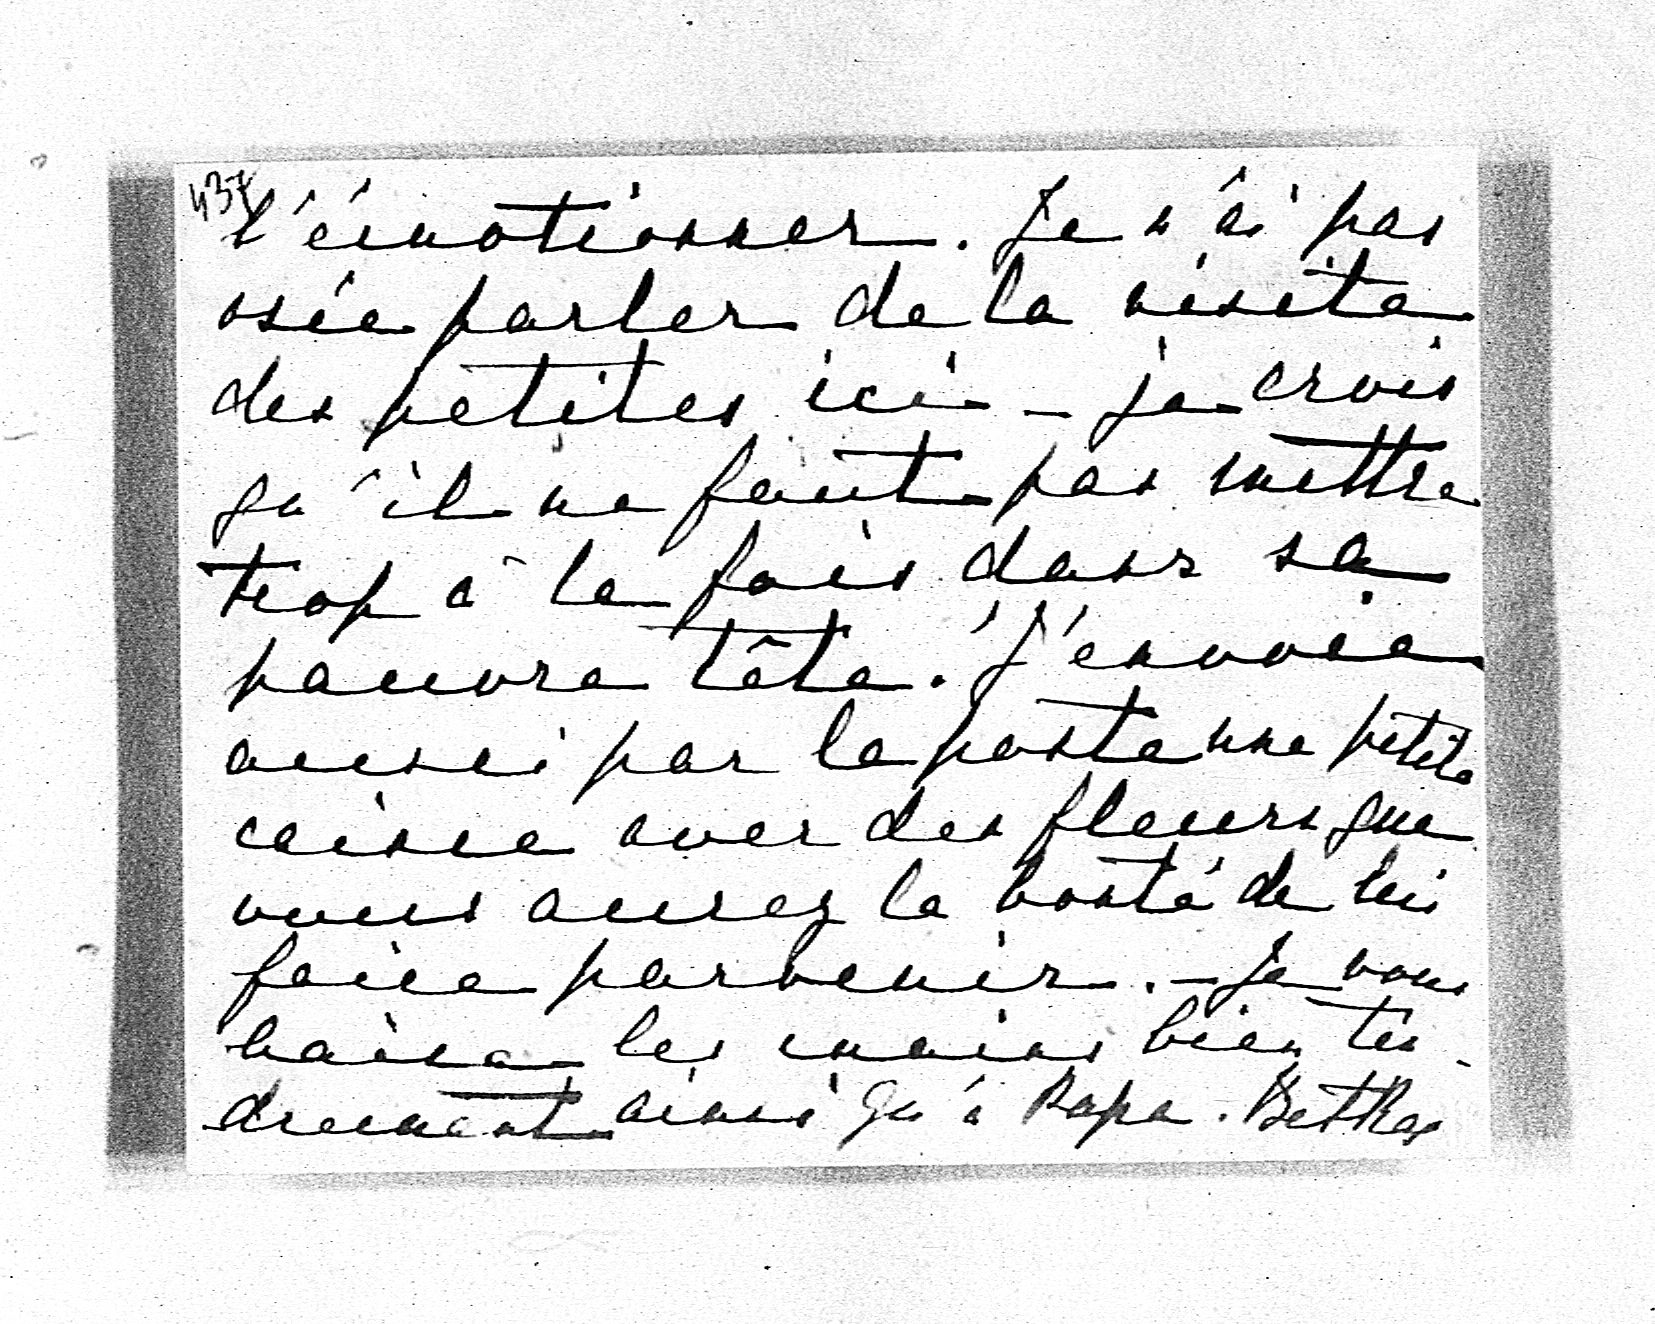 437
l'émotionner. Je n'ai pas
osée parler de la visite
des petites ici – je crois
qu'il ne faut pas mettre
trop à la fois dans sa
pauvre tête. J'envoie
aussi par la poste une petite
caisse avec des fleurs que
vous aurez la bonté de lui
faire parvenir. – Je vous
baise les mains bien ten-
drement ainsi qu'à Papa.